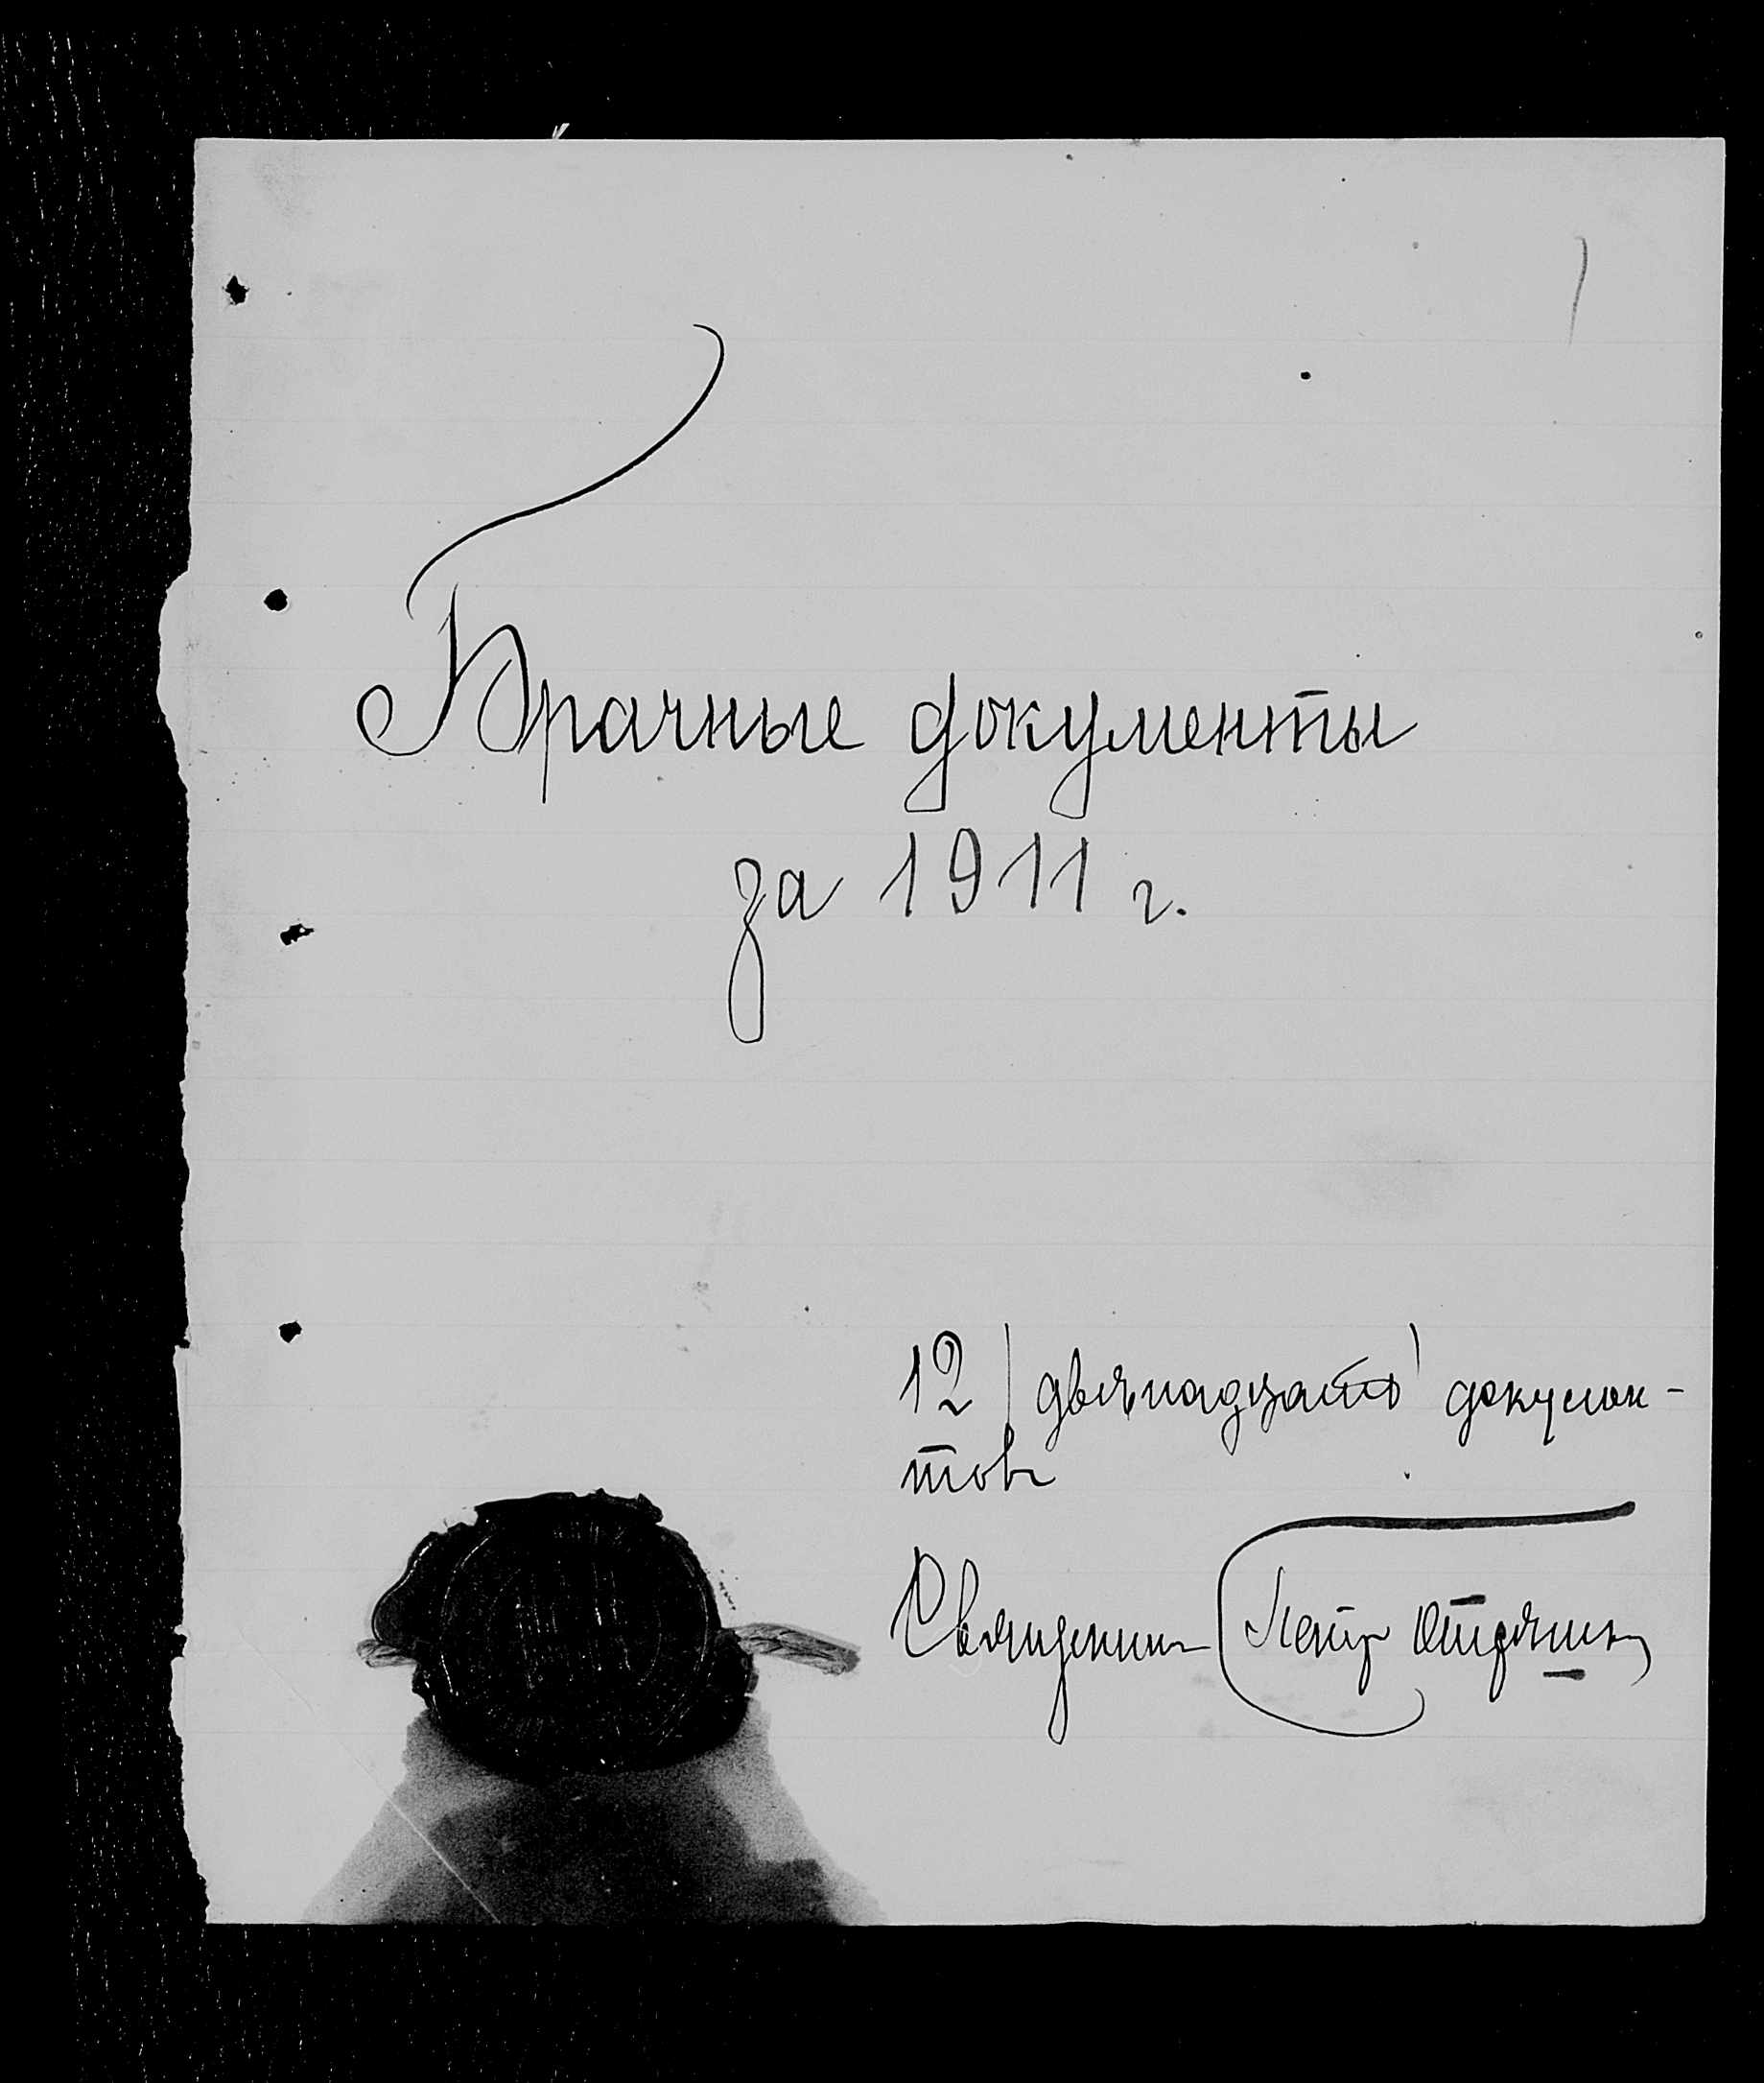 1
Брачные документы
за 1911 г.
12 / двѣнадцать / докумен-
товъ
Священник Петр